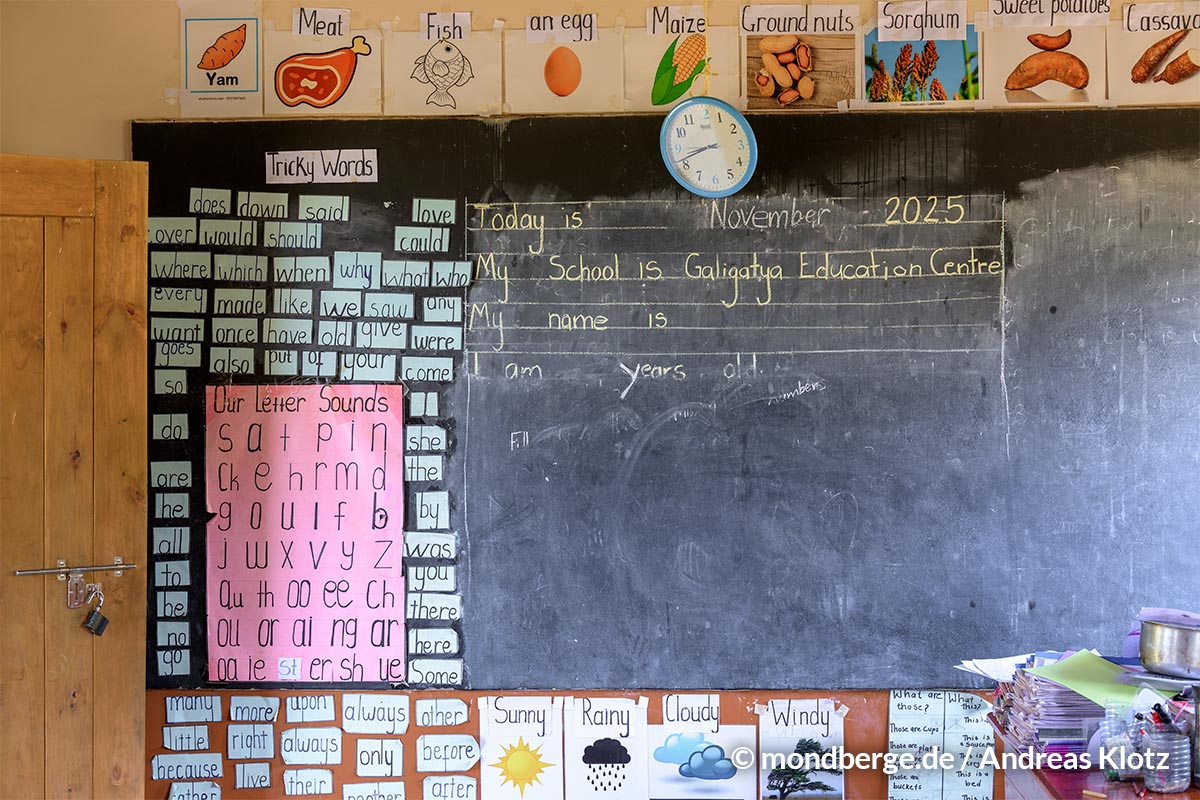 Yam
Meat
Fish
an egg
Maize
Ground nuts
Sorghum
Sweet potatoes
Cassava
Tricky Words
does down said love
over would should could
where which when why what who
every made like we saw any
want once have old give were
goes also put of your come
so
do
are
he
all
to
be
no
go
Our Letter Sounds
s a t p i n
ck e h r m d
g o u l f b
j w x v y z
qu th oo ee ch
ou or ai ng ar
oa ie st er sh ue
I
she
the
by
was
you
there
here
Some
Today is November 2025
My School is Galigatya Education Centre
My name is
I am years old.
numbers
Fill
many more upon always other
little right always only before
because live their another after
father
Sunny
Rainy
Cloudy
Windy
What are those?
Those are cups
Those are
buckets
What
this?
This is
a saucepan
This is a
bed
© mondberge.de / Andreas Klotz